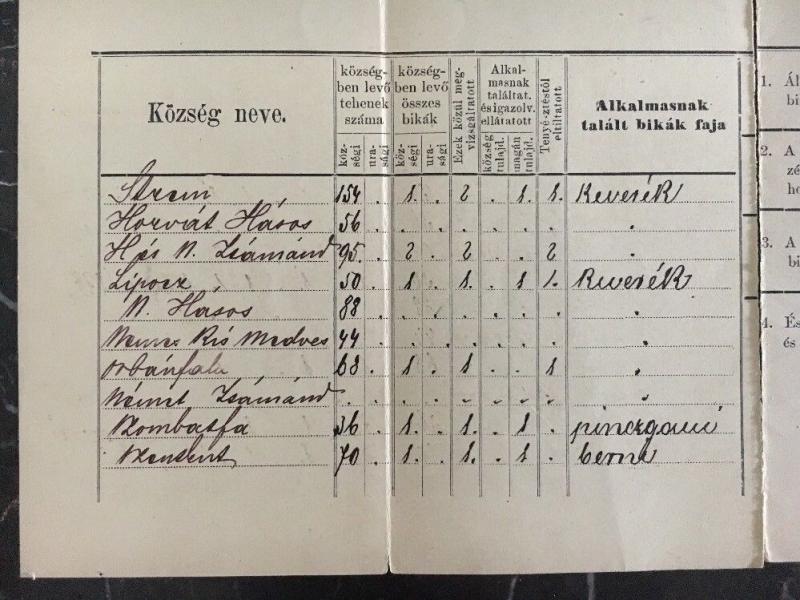 Község neve.
község-
ben levő
tehenek
száma
köz-
ségi
ura-
sági
község-
ben levő
összes
bikák
köz-
ségi
ura-
sági
Ezek közül meg-
vizsgáltatott
Alkal-
masnak
találtat.
és igazolv.
ellátatott
község
tulajd.
magán
tulajd.
Tenyésztéstől
eltiltatott
Alkalmasnak
talált bikák faja
Strem 154 . 1. . 2 . 1 1. Keverék
Horvát Hásos 56 . . . . . . . "
H és N. Zsámánd 95. . 2 . 2 . . 2 "
Lipócz 50 . 1 . 1. . 1 1. Keverék
N. Hásos 88 . . . . . . . "
Nemes Kis Medves 44 . . . . . . . "
Orbánfalu 68 . 1 . 1 . . 1 "
Német Zsámánd . . . . . . . . "
Szombatfa 36 . 1. . 1. . 1 . pinczgaui
Szentent 70 . 1. . 1. . 1 . berni
1. Ál
bi
2. A
zé
ho
3. A
bi
4. És
és